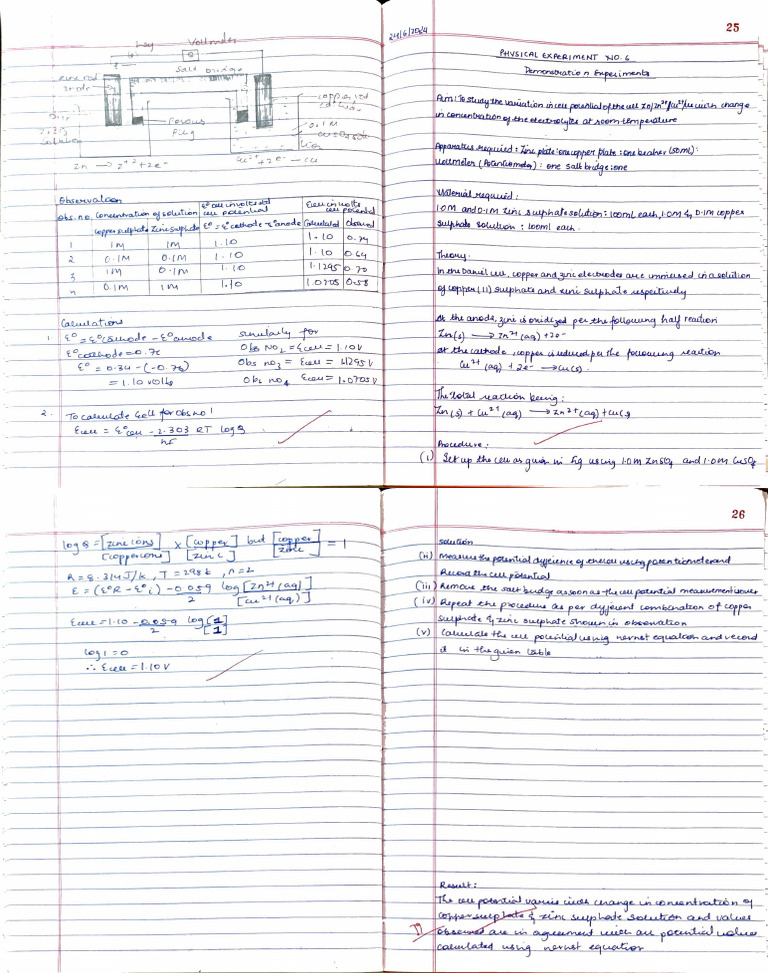 Key Voltmeter
Salt bridge
zinc rod
anode
copper rod
cathode
0.1M
CuSO4 soln
Porous
Plug
solution
Zn → Z+2 + 2e-
Cu2+ + 2e- — Cu
Observation
Obs. no. Concentration of solution E° cell in volts std cell potential Ecell in volts cell potential
copper sulphate Zinc sulphate E° = E°cathode - E°anode Calculated Observed
1 1M 1M 1.10 1.10 0.74
2 0.1M 0.1M 1.10 1.10 0.64
3 1M 0.1M 1.10 1.1295 0.70
4 0.1M 1M 1.10 1.0705 0.58
Calculations
1. E° = E°cathode - E°anode similarly for
E°cathode = 0.76 Obs NO2 = Ecell = 1.10V
E° = 0.34 - (-0.76) Obs no3 = Ecell = 1.1295V
= 1.10 volts Obs no4 Ecell = 1.0705V
2. To calculate Ecell for Obs no 1
Ecell = E°cell - 2.303 RT log Q
nF
25
24/6/2024
PHYSICAL EXPERIMENT NO. 6
Demonstration Experiments
Aim: To study the variation in cell potential of the cell Zn/Zn2+//Cu2+/Cu with change
in concentration of the electrolytes at room temperature
Apparatus required: Zinc plate: one copper plate: one beaker (50ml):
voltmeter (Potentiometer): one salt bridge: one
Material required:
1.0M and 0.1M Zinc sulphate solution: 100ml each, 1.0M & 0.1M copper
sulphate solution: 100ml each.
Theory.
In the Daniel cell, copper and zinc electrodes are immersed in a solution
of copper (II) sulphate and zinc sulphate respectively
At the anode, zinc is oxidized per the following half reaction
Zn(s) → Zn2+(aq) + 2e-
at the cathode, copper is reduced per the following reaction
Cu2+ (aq) + 2e- → Cu(s).
The total reaction being:
Zn(s) + Cu2+(aq) → Zn2+(aq) + Cu(s)
Procedure:
(i) Set up the cell as given in fig using 1.0M ZnSO4 and 1.0M CuSO4
log Q = [zinc ions] × [copper] but [copper] = 1
[copper ions] [zinc] zinc
R = 8.314J/k, T = 298k, n = 2
E = (E°R - E°L) - 0.059 log [Zn2+(aq)]
2 [Cu2+(aq)]
Ecell = 1.10 - 0.059 log [1]
2 [1]
log 1 = 0
∴ Ecell = 1.10V
26
solution
(ii) Measure the potential difference of the cell using potentiometer and
Record the cell potential
(iii) Remove the salt bridge as soon as the cell potential measurement is over
(iv) Repeat the procedure as per different combination of copper
sulphate & zinc sulphate shown in observation
(v) Calculate the cell potential using nernst equation and record
it in the given table
Result:
The cell potential varies with change in concentration of
copper sulphate & zinc sulphate solution and values
observed are in agreement with cell potential values
calculated using nernst equation